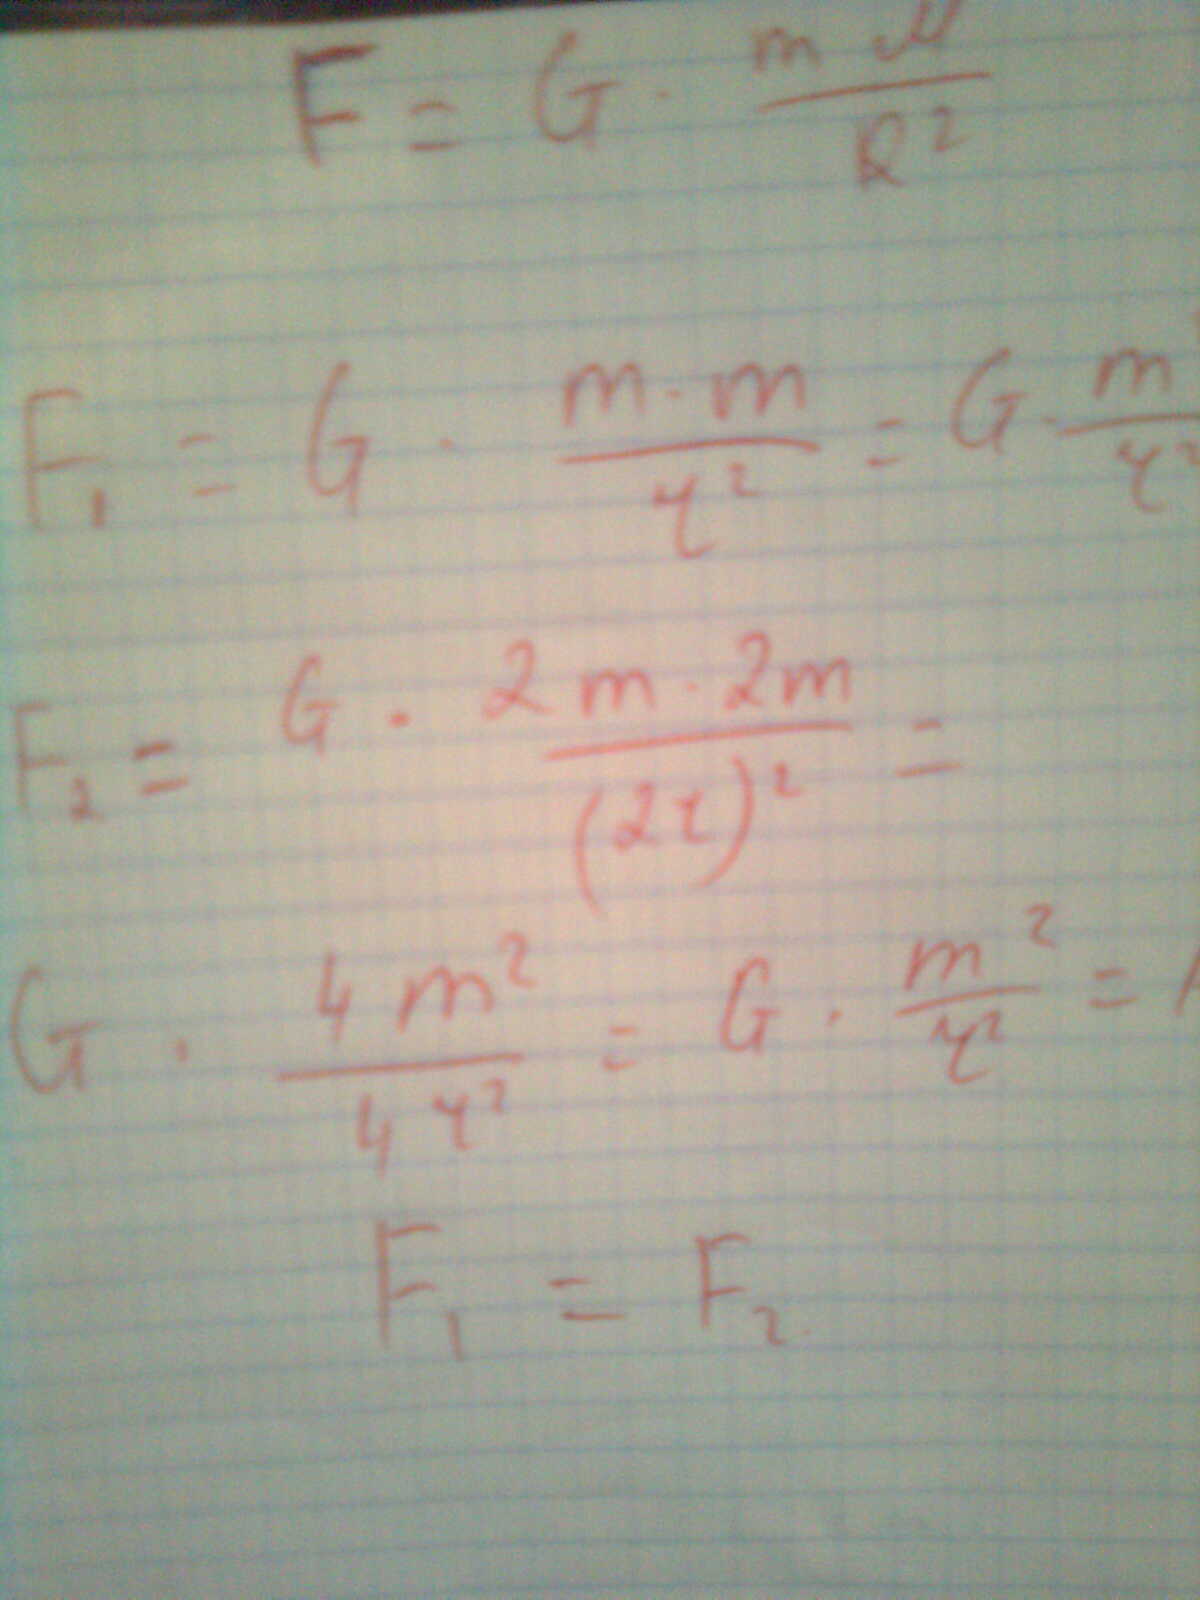 F = G · m M / R²
F₁ = G · m · m / r² = G · m / r²
F₂ = G · 2m · 2m / (2r)² =
G · 4m² / 4r² = G · m² / r² =
F₁ = F₂